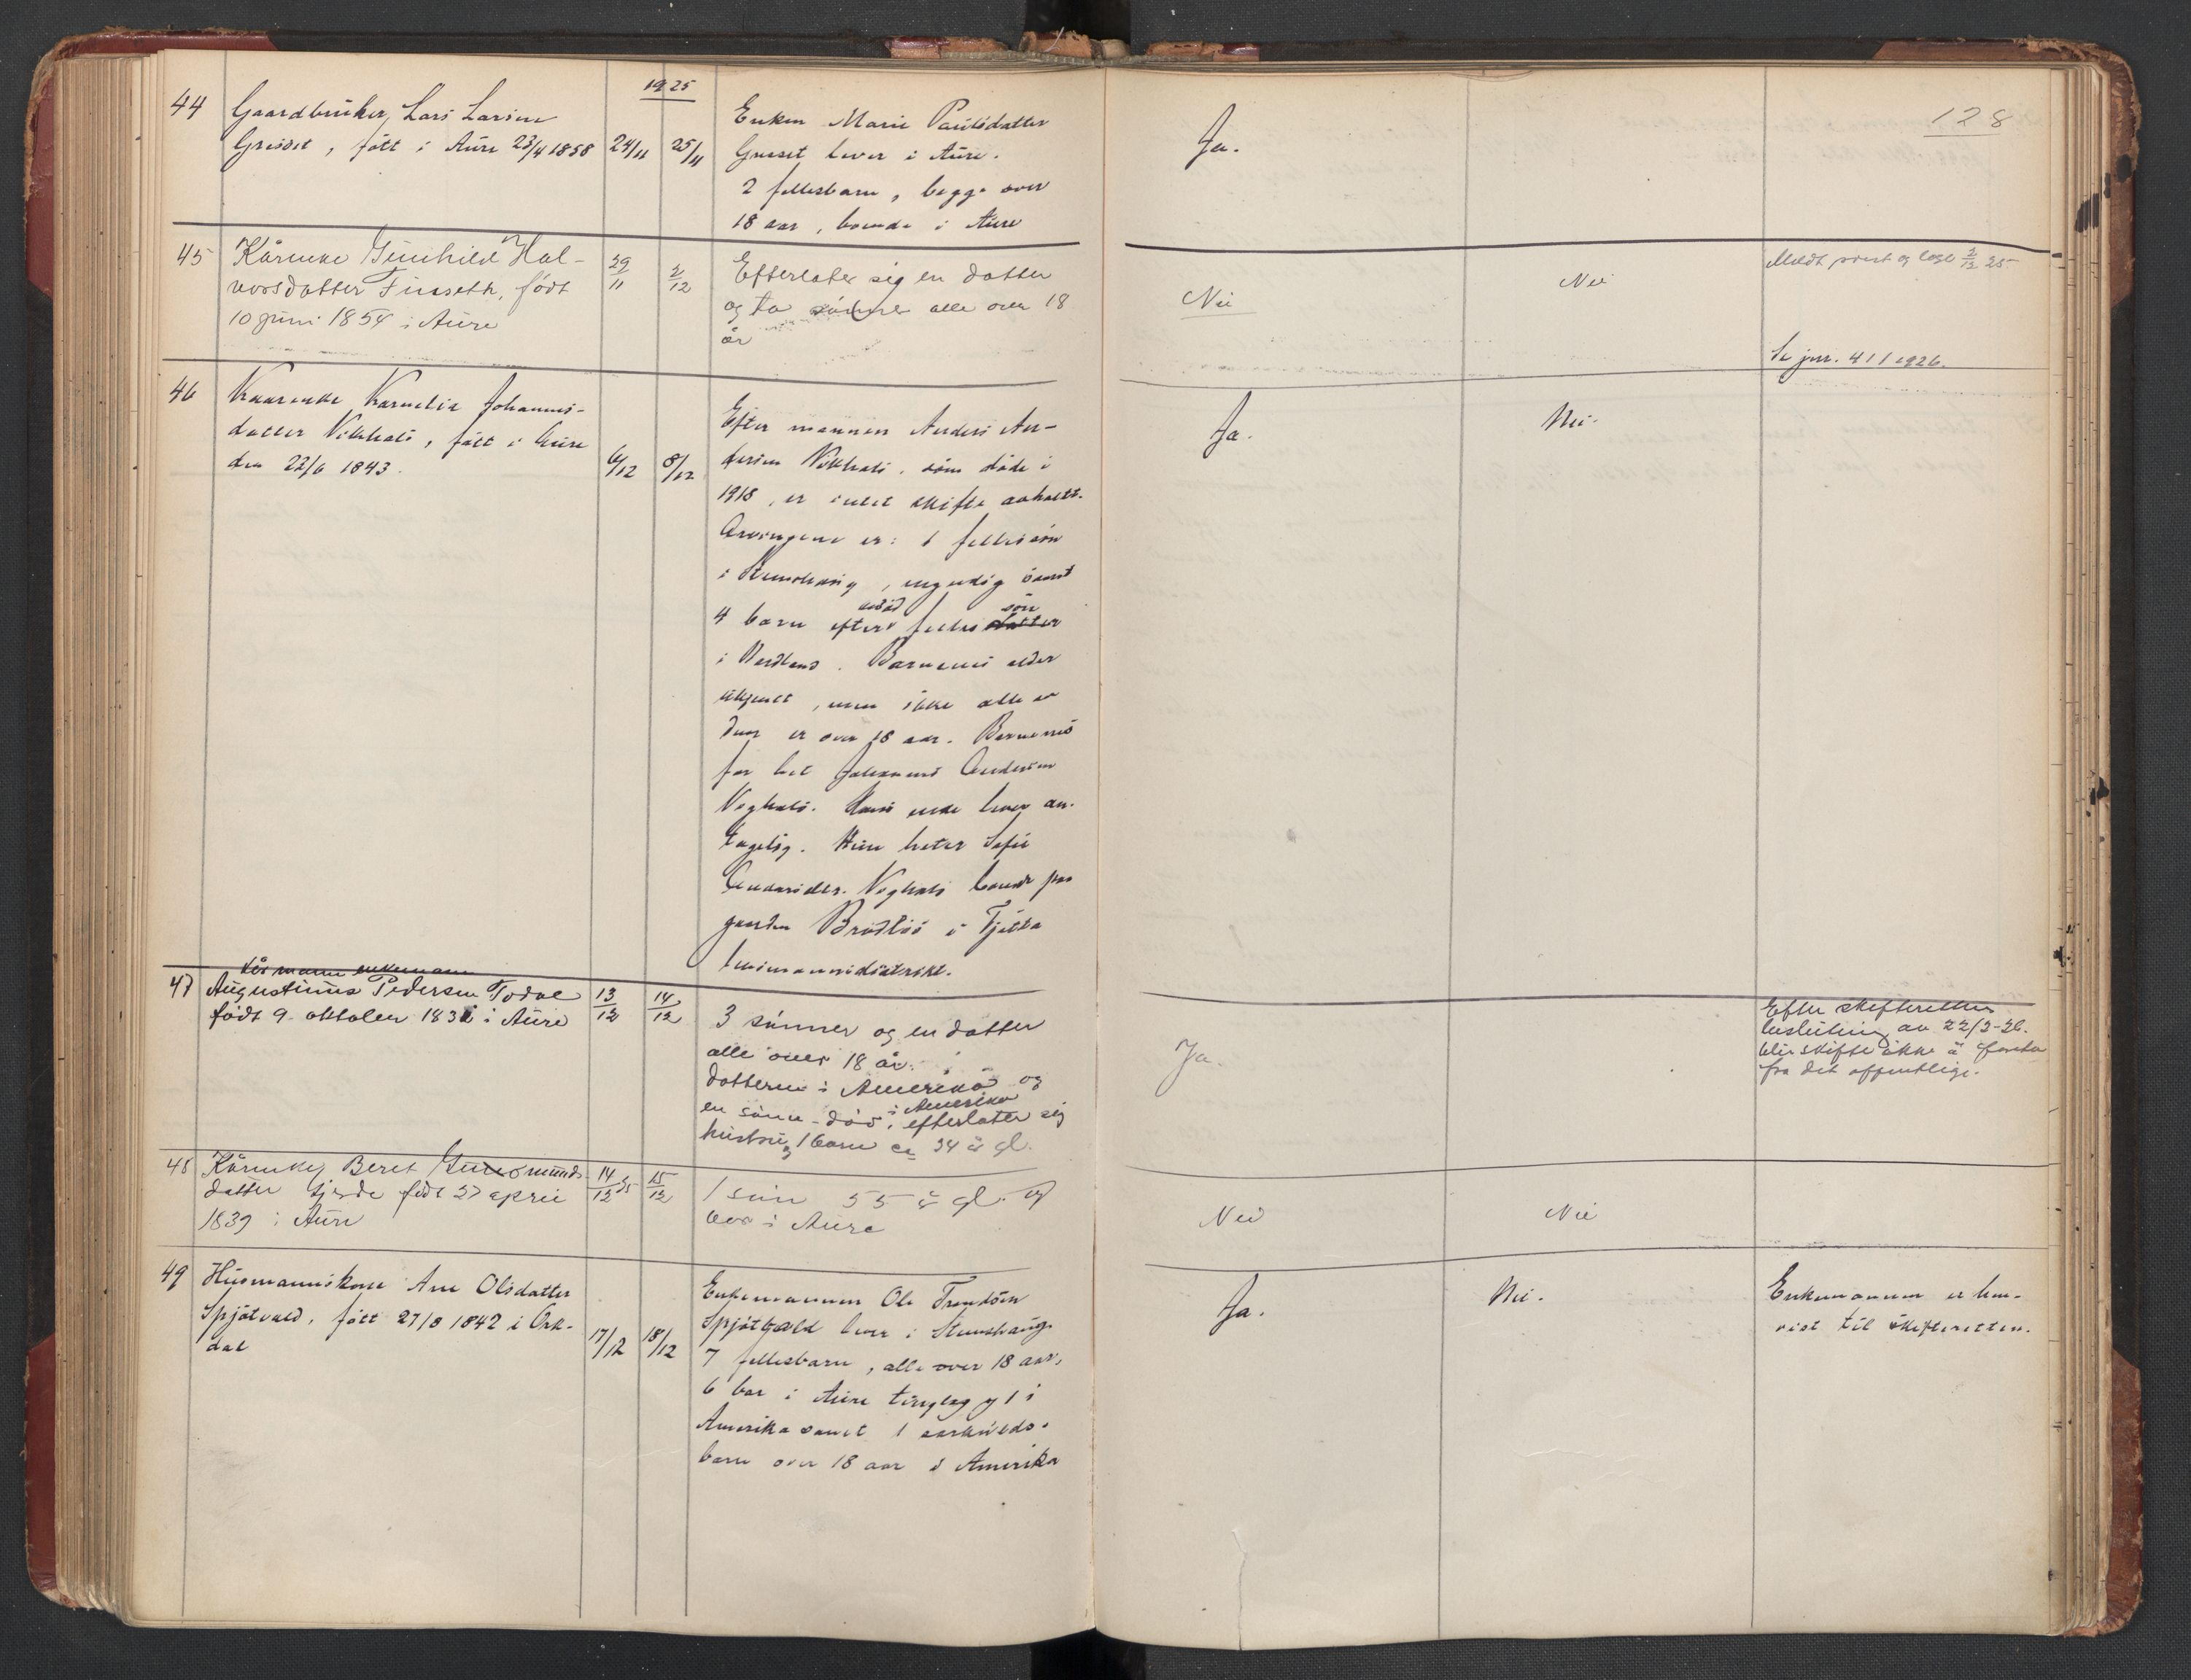 1925
128
44
Gaardbruker Lars Larsen
Grisset, føtt i Aure 23/4 1858
24/11
25/11
Enken Marie Paulsdatter
Grisset lever i Aure.
2 fellesbarn, begge over
18 aar, boende i Aure
Ja.
45
Kårenke Gunhild Hal-
vorsdatter Finseth, födt
10 juni 1854 i Aure
29/11
2/12
Efterlater sig en datter
og to sönner alle over 18
år
Nei
Nei
Meldt prest og 2/12 25
Se jnr. 41 1926.
46
Kaarenke Kornelia Johannes-
datter Vikhals, føtt i Aure
den 22/6 1843.
6/12
8/12
Efter mannen Anders An-
dersen Vikhals, som døde i
1918, er intet skifte avholdt.
Arvingene er: 1 felles søn
i Stemshaug, myndig samt
4 barn efter avdød felles datter søn
i Nordland. Barnenes alder
ukjent, men ikke alle av
dem er over 18 aar. Barnenes
far het Johannes Andersen
Veghals. Hans enke lever an-
tagelig. Hun heter Sofie
Andersdtr. Veghals boende paa
garden Brödlös i Tjötta
lensmannsdistrikt.
Ja.
Nei.
47
kårmann enkemann
Augustinus Pedersen Todal
födt 9 oktober 1831 i Aure
13/12
14/12
3 sönner og en datter
alle over 18 år.
datteren i Amerika og
en sönn död i Amerika, efterlater sig
hustru og 1 barn ca 34 år gl.
Ja.
Efter skifterettens
beslutning av 22/3-26.
blir skifte ikke å foreta
fra det offentlige.
48
Kårenke Beret Gudmunds-
datter Gjerde födt 27 april
1839 i Aure
14/12 25
15/12
1 sönn 55 år gl. og
bor i Aure
Nei
Nei
49
Husmannskone Ane Olsdatter
Spjøtvold, føtt 27/8 1842 i Ork-
dal
17/12
18/12
Enkemannen Ole Trondsen
Spjøtvold lever i Stemshaug
7 fellesbarn, alle over 18 aar,
6 bor i Aure tinglag og 1 i
Amerika samt 1 særkulds-
barn over 18 aar i Amerika
Ja.
Nei.
Enkemannen er hen-
vist til skifteretten.